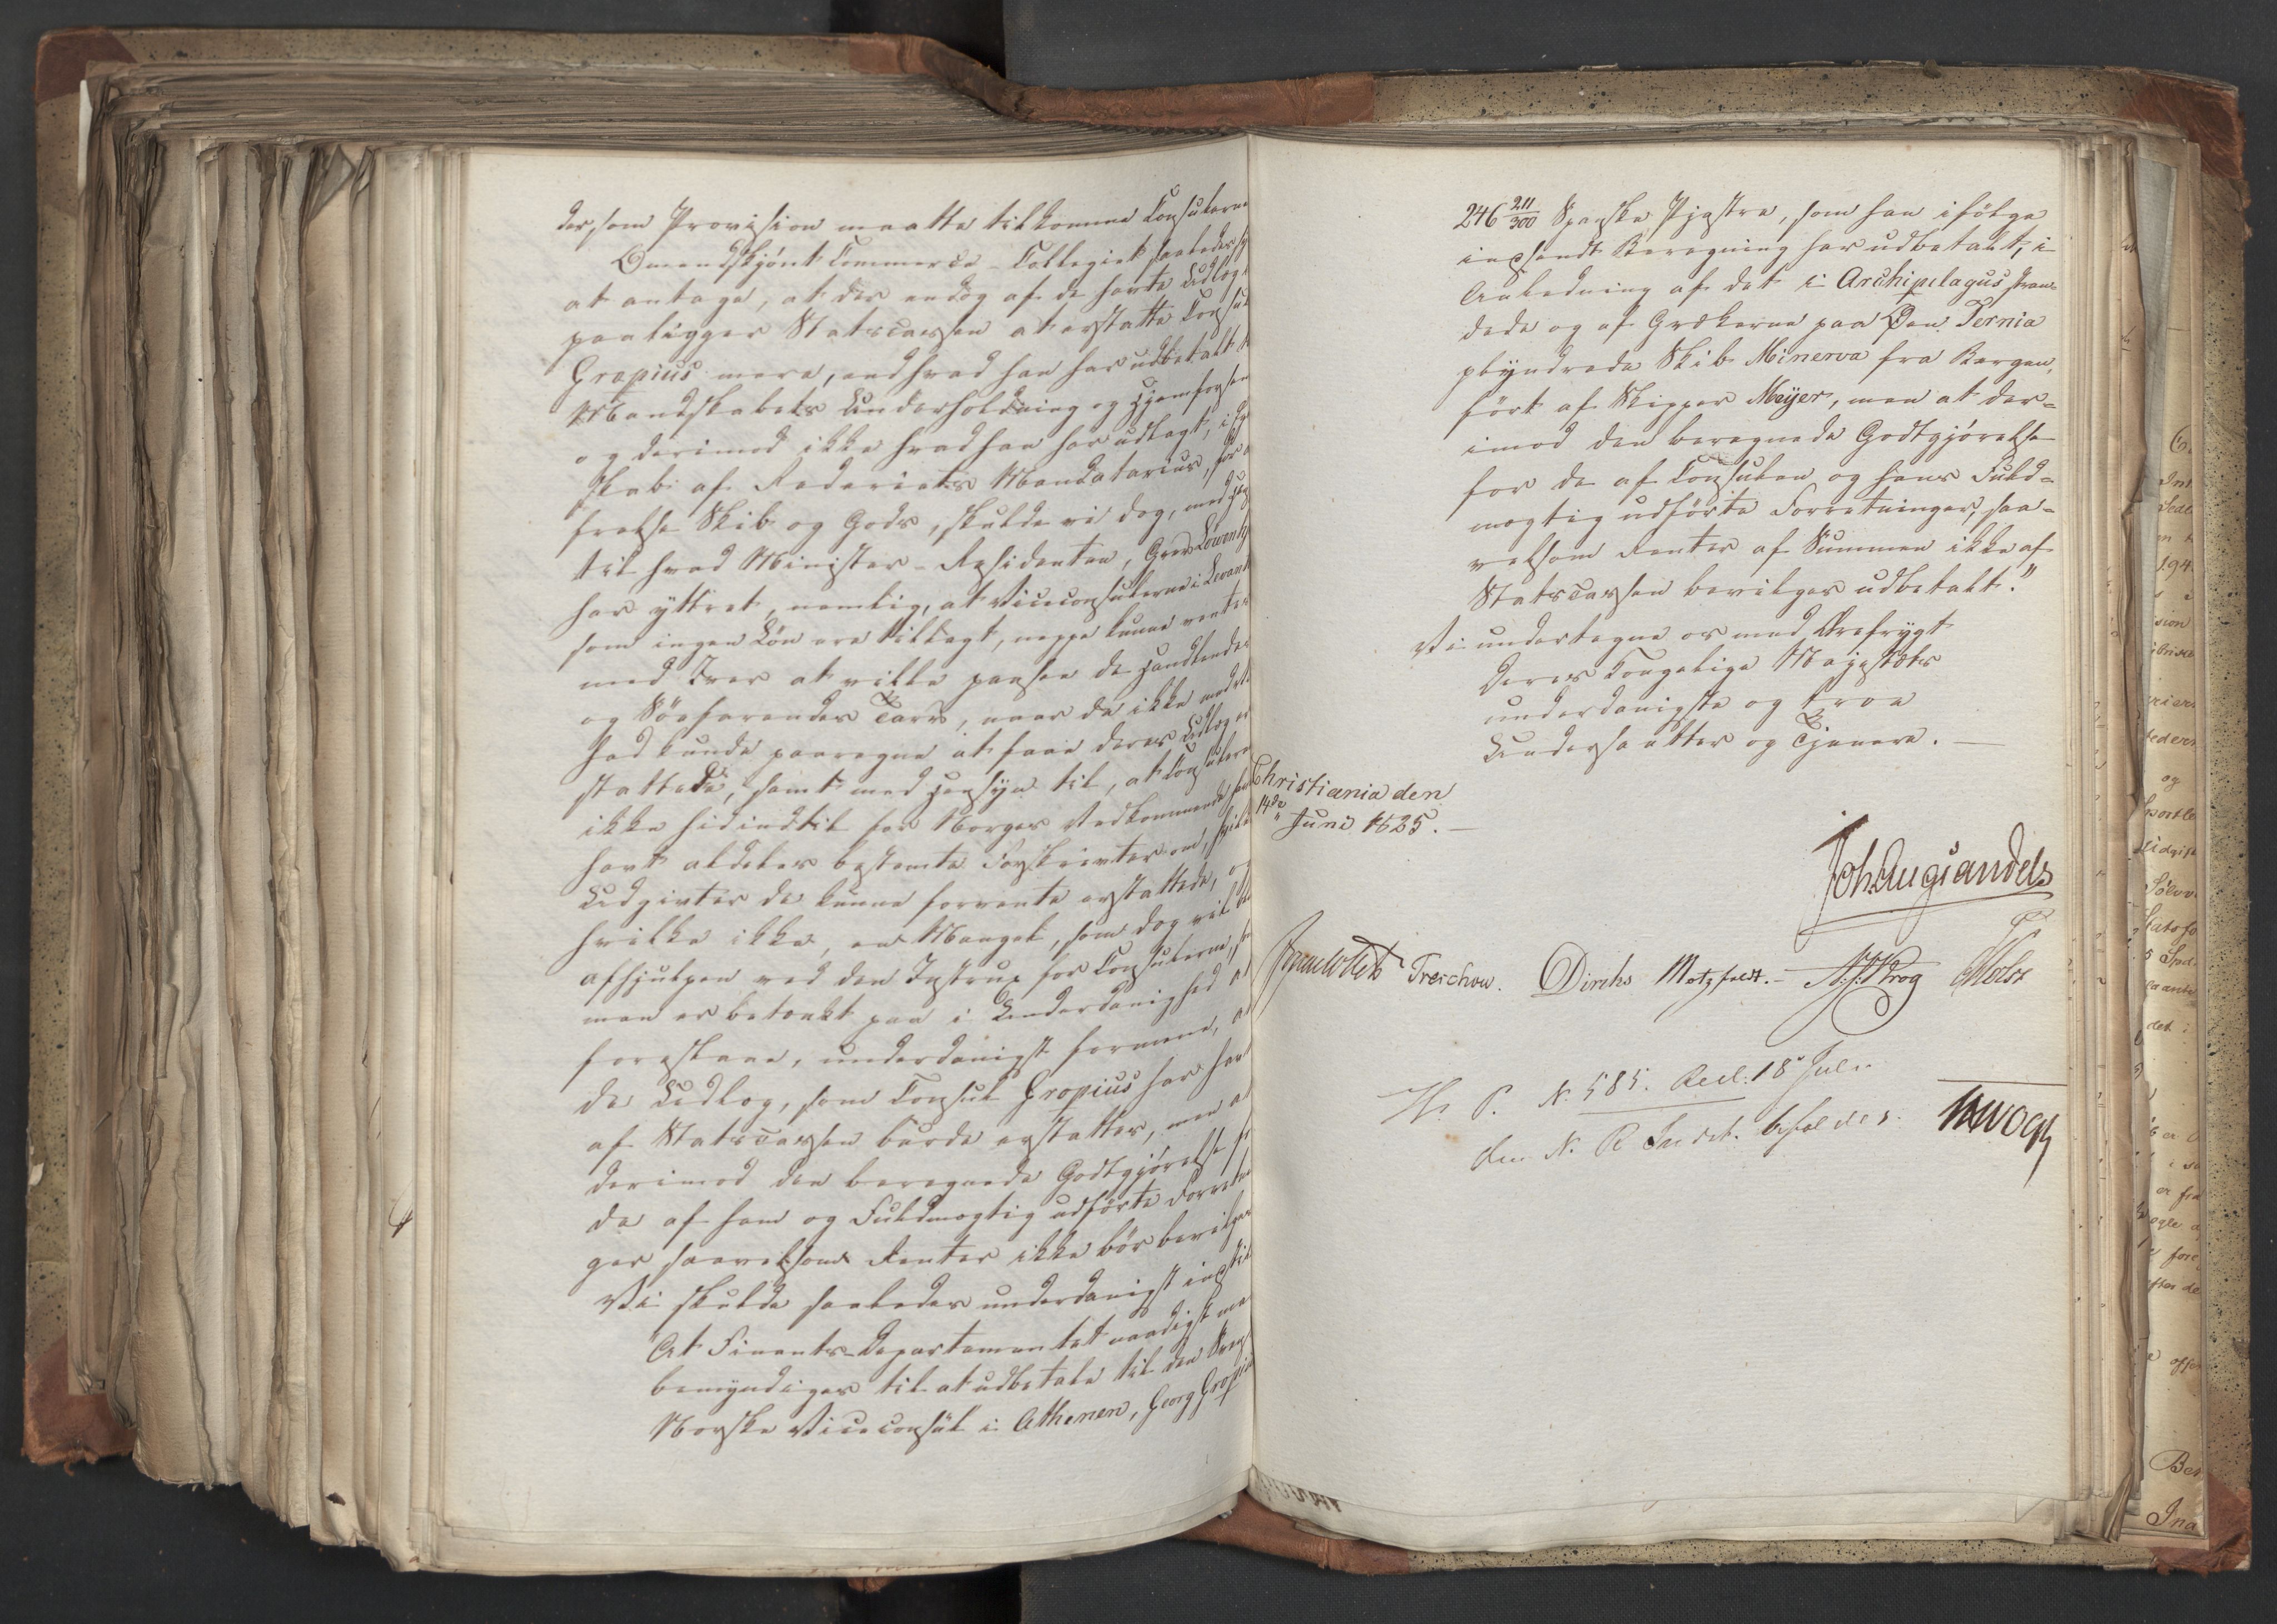 der, som Provision maatte tilkomme Consulerne
Omendskjönt Commerce-Collegiet saaledes sy
at antage, at der endog af de havte Udlæg
paaligger Statscassen at erstatte Consul
Gropius mere, end hvad han har udbetalt t
Mandskabets Underholdning og Hjemforsen
og derimod ikke hvad han har udlagt, i Eg
skab af Rederiets Mandatarius, for at
frelse Skib og Gods, skulde vi dog, med Hen
til hvad Minister-Residenten, Grev Löwenhj
har yttret, nemlig, at Viceconsulerne i Levant
som ingen Lön ere tillagt, neppe kunne ventes
med Iver at ville paasee de Handlendes
og Söefarendes Tarv, naar de ikke med
hed kunde paaregne at faae deres Udlæg er
stattede, samt med Hensyn til, at Consulern
ikke hidindtil for Norges Vedkommende have
havt aldeles bestemte Forskrivter om, hvilke
Udgivter de kunne forvente erstattede, og
hvilke ikke, en Mangel, som dog vil bli
afhjulpen ved den Instrux for Consulerne, so
man er betænkt paa i Underdanighed at
foreslaae, underdanigst formene, at
de Udlæg, som Consul Gropius har havt
af Statscassen burde erstattes, men at
derimod den beregnede Godtgjörelse for
de af ham og Fuldmægtig udförte Forretnin
ger saavelsom Renter ikke bör bevilges
Vi skulde saaledes underdanigst indstil
"At Finants-Departementet naadigst maa
bemyndiges til at udbetale til den Svensk
Norske Viceconsul i Athenen, Georg Gropius
246 211/300 Spanske Pjastre, som han ifölge
indsendt Beregning har udbetalt, i
Anledning af det i Archipelagus stran-
dede og af Grækerne paa Öen Ternia
plyndrede Skib Minerva fra Bergen,
fört af Skipper Meyer, men at der-
imod den beregnede Godtgjörelse
for de af Consulen og hans Fuld-
mægtig udförte Forretninger, saa-
velsom Renter af Summen ikke af
Statscassen bevilges udbetalt."
Vi undertegne os med Ærefrygt
Deres Kongelige Majestæts
underdanigste og troe
Undersaatter og Tjenere.
Christiania den
14de Juni 1825.
Joh. Aug. Sandels
Treschow. Diriks Motzfeldt. Krog Holst
H. P. N. 585. Resl: 18 Juli
den N. R. Indst. bifaldes.